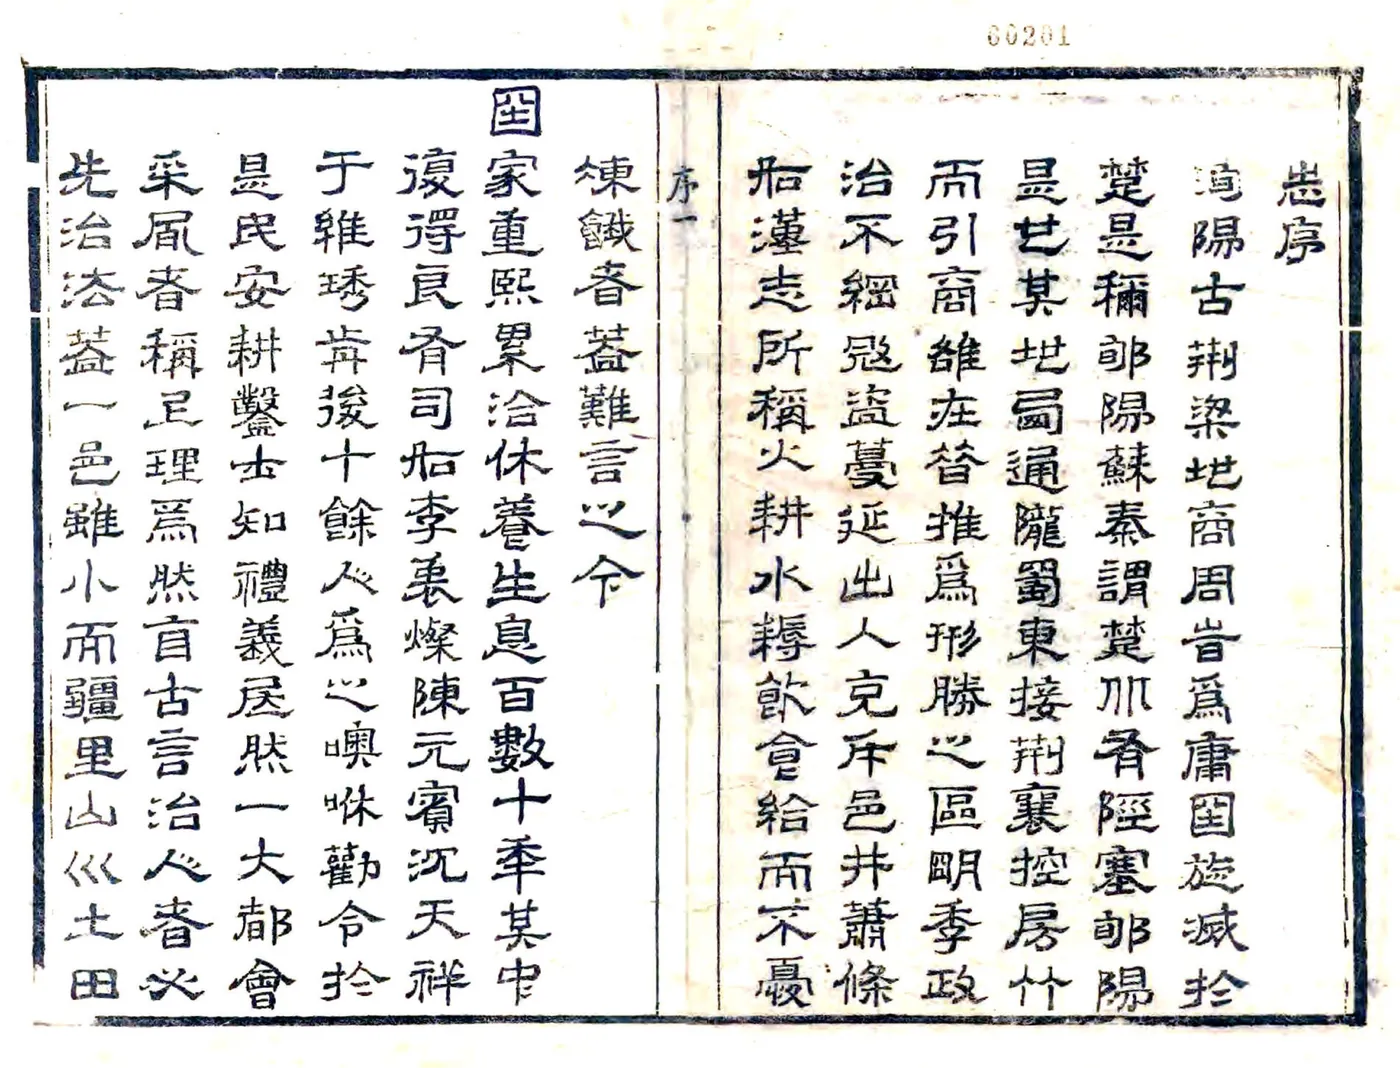 60201
志序
洵陽古荆梁地商周皆為庸国旋滅於
楚是稱郇陽蘇秦謂楚北有陘塞郇陽
是也其地局通隴蜀東接荆襄控房竹
而引商雒在昔推為形勝之區明季政
治不綱寇盗蔓延出人充斥邑井蕭條
於漢志所稱火耕水耨飲食給而不憂
序一
凍餓者蓋難言之今
国家重熙累洽休養生息百數十年其中
復得良有司於李夀燦陳元賓沉天祥
于維琇前後十餘人為之噢咻勸令於
是民安耕鑿士知禮義居然一大都會
采風者稱上理焉然盲古言治人者必
先治法蓋一邑雖小而疆里山巛土田